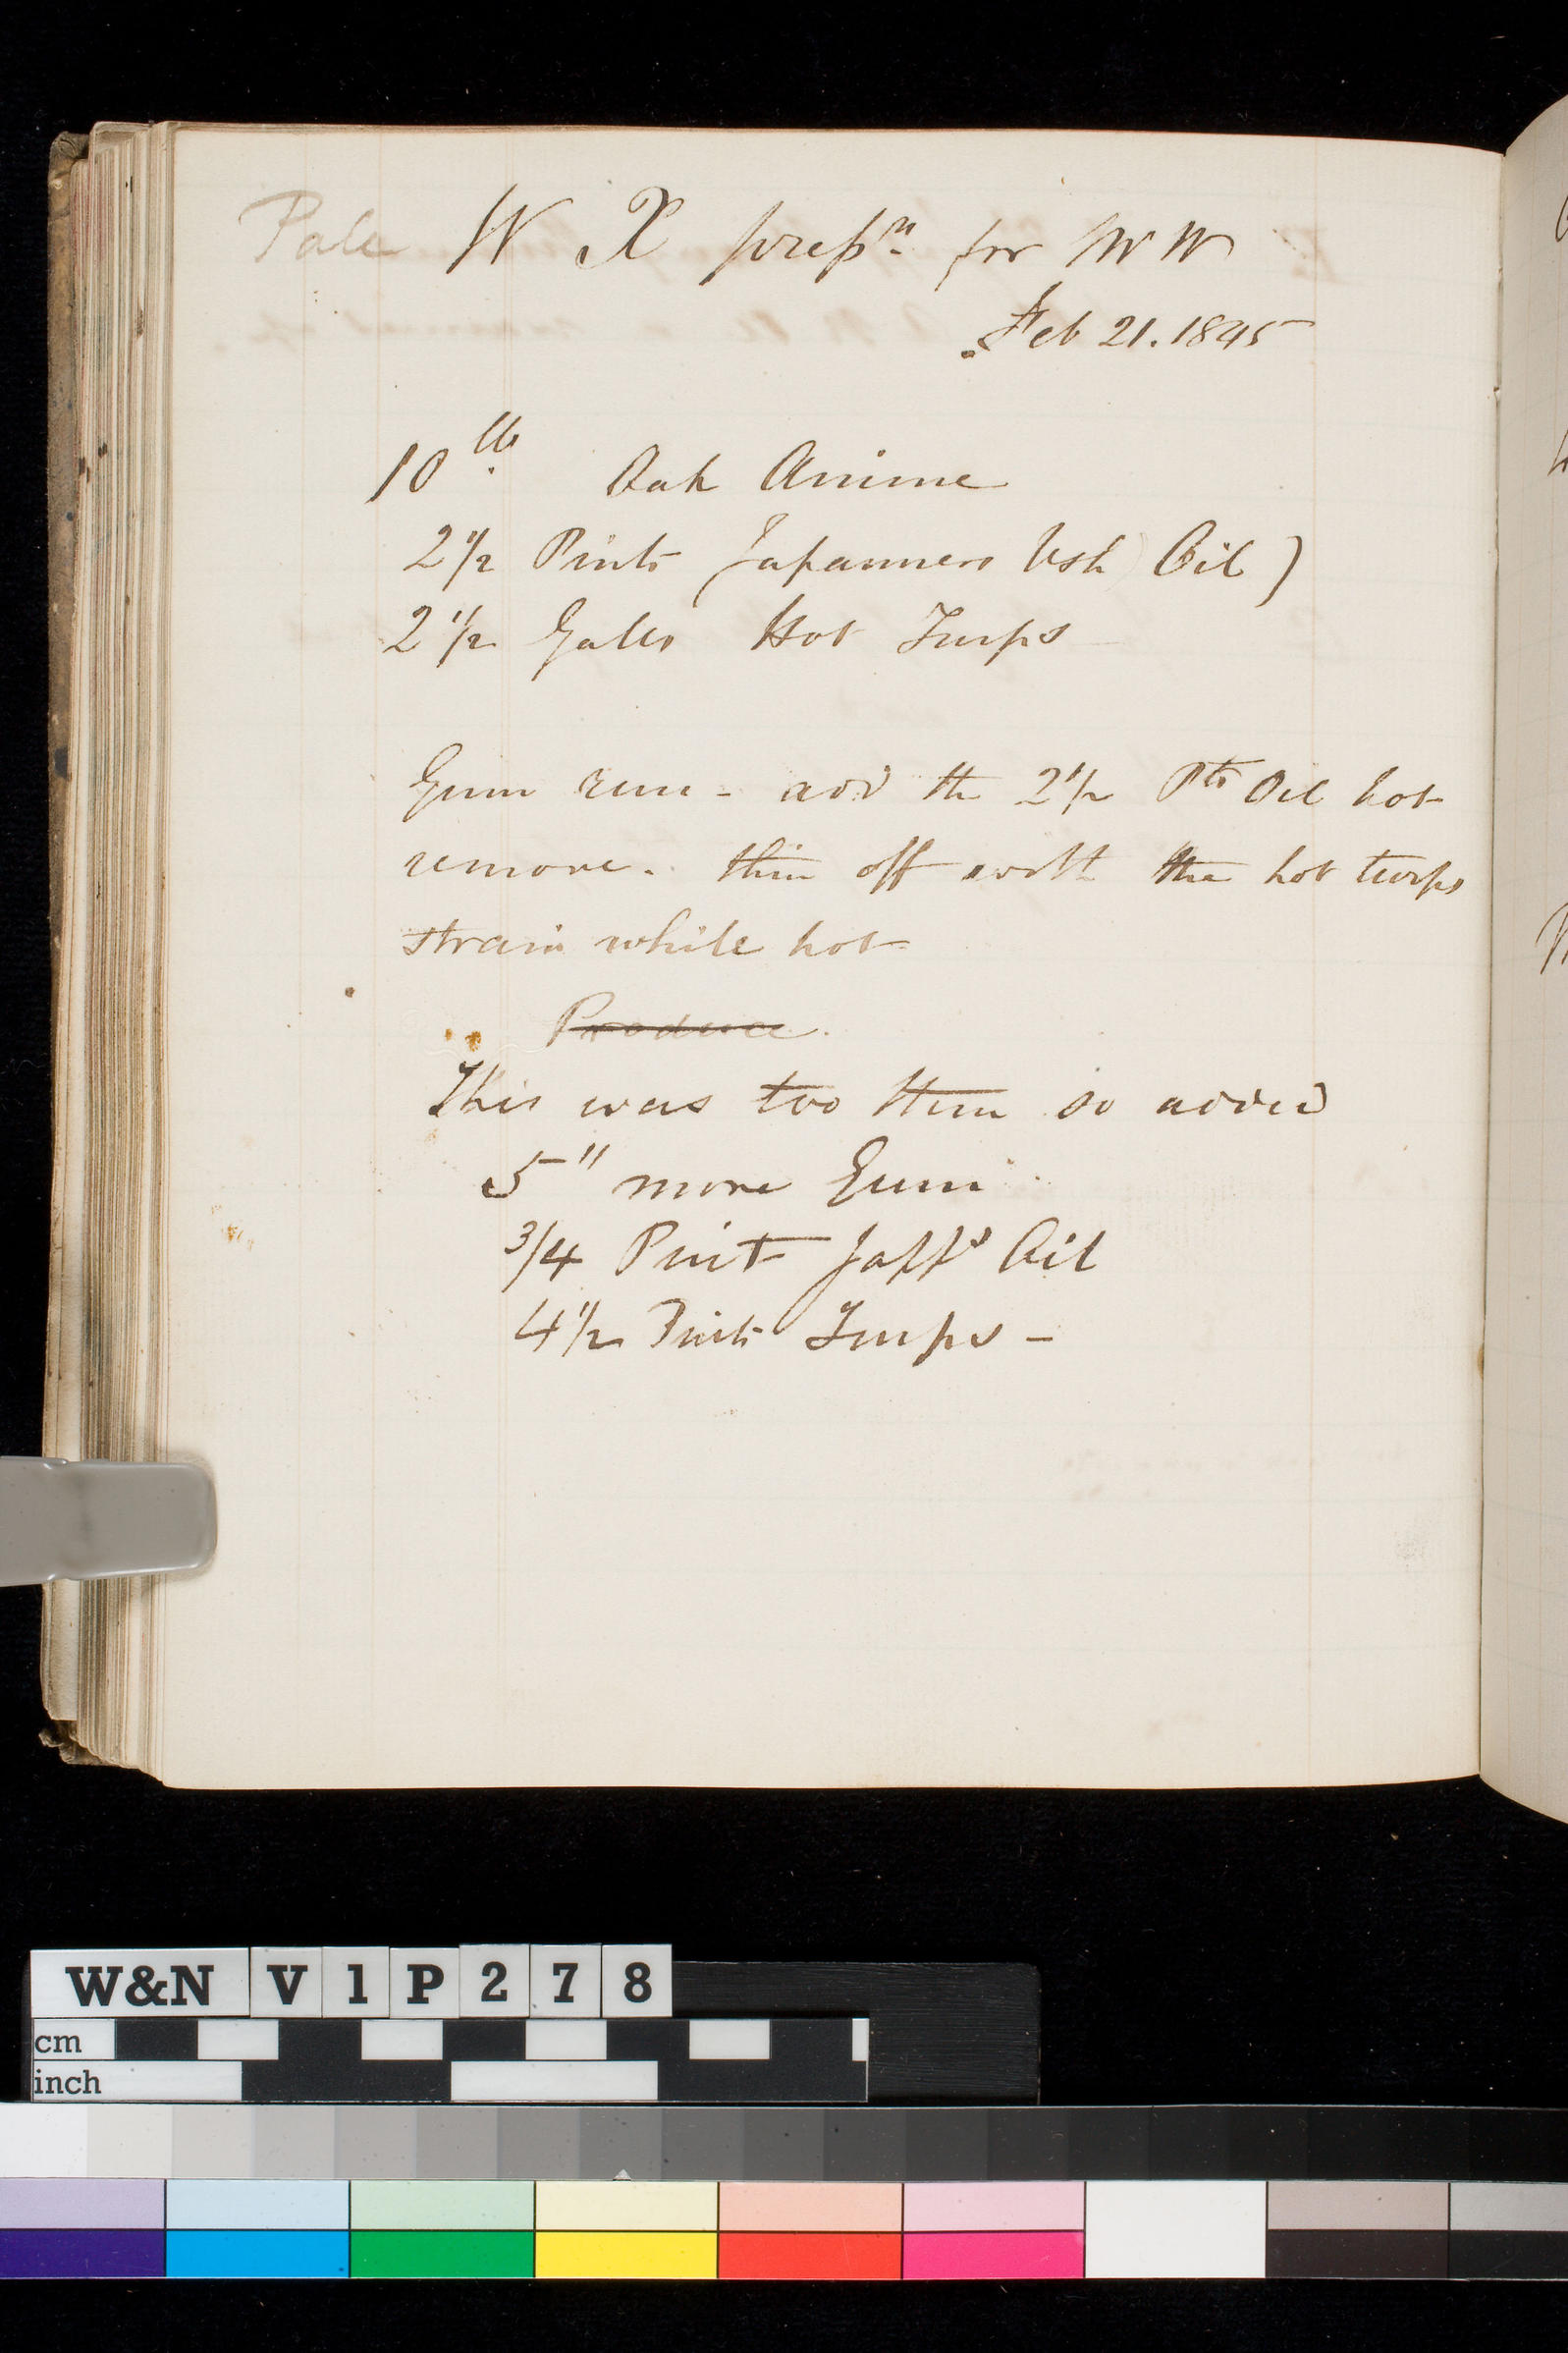 Pale W X prepn for W W
Feb 21. 1845
10 lb Oak Anime
2 1/2 Pints (Japanners Vsh Oil)
2 1/2 Galls Hot Turps
Gum run - add the 2 1/2 Pts Oil hot
remove. thin off with the hot turps
strain while hot
Produce.
This was too thin so added
5" more Gum
3/4 Pint Japps Oil
4 1/2 Pints Turps -
W&N V1P278
cm
inch